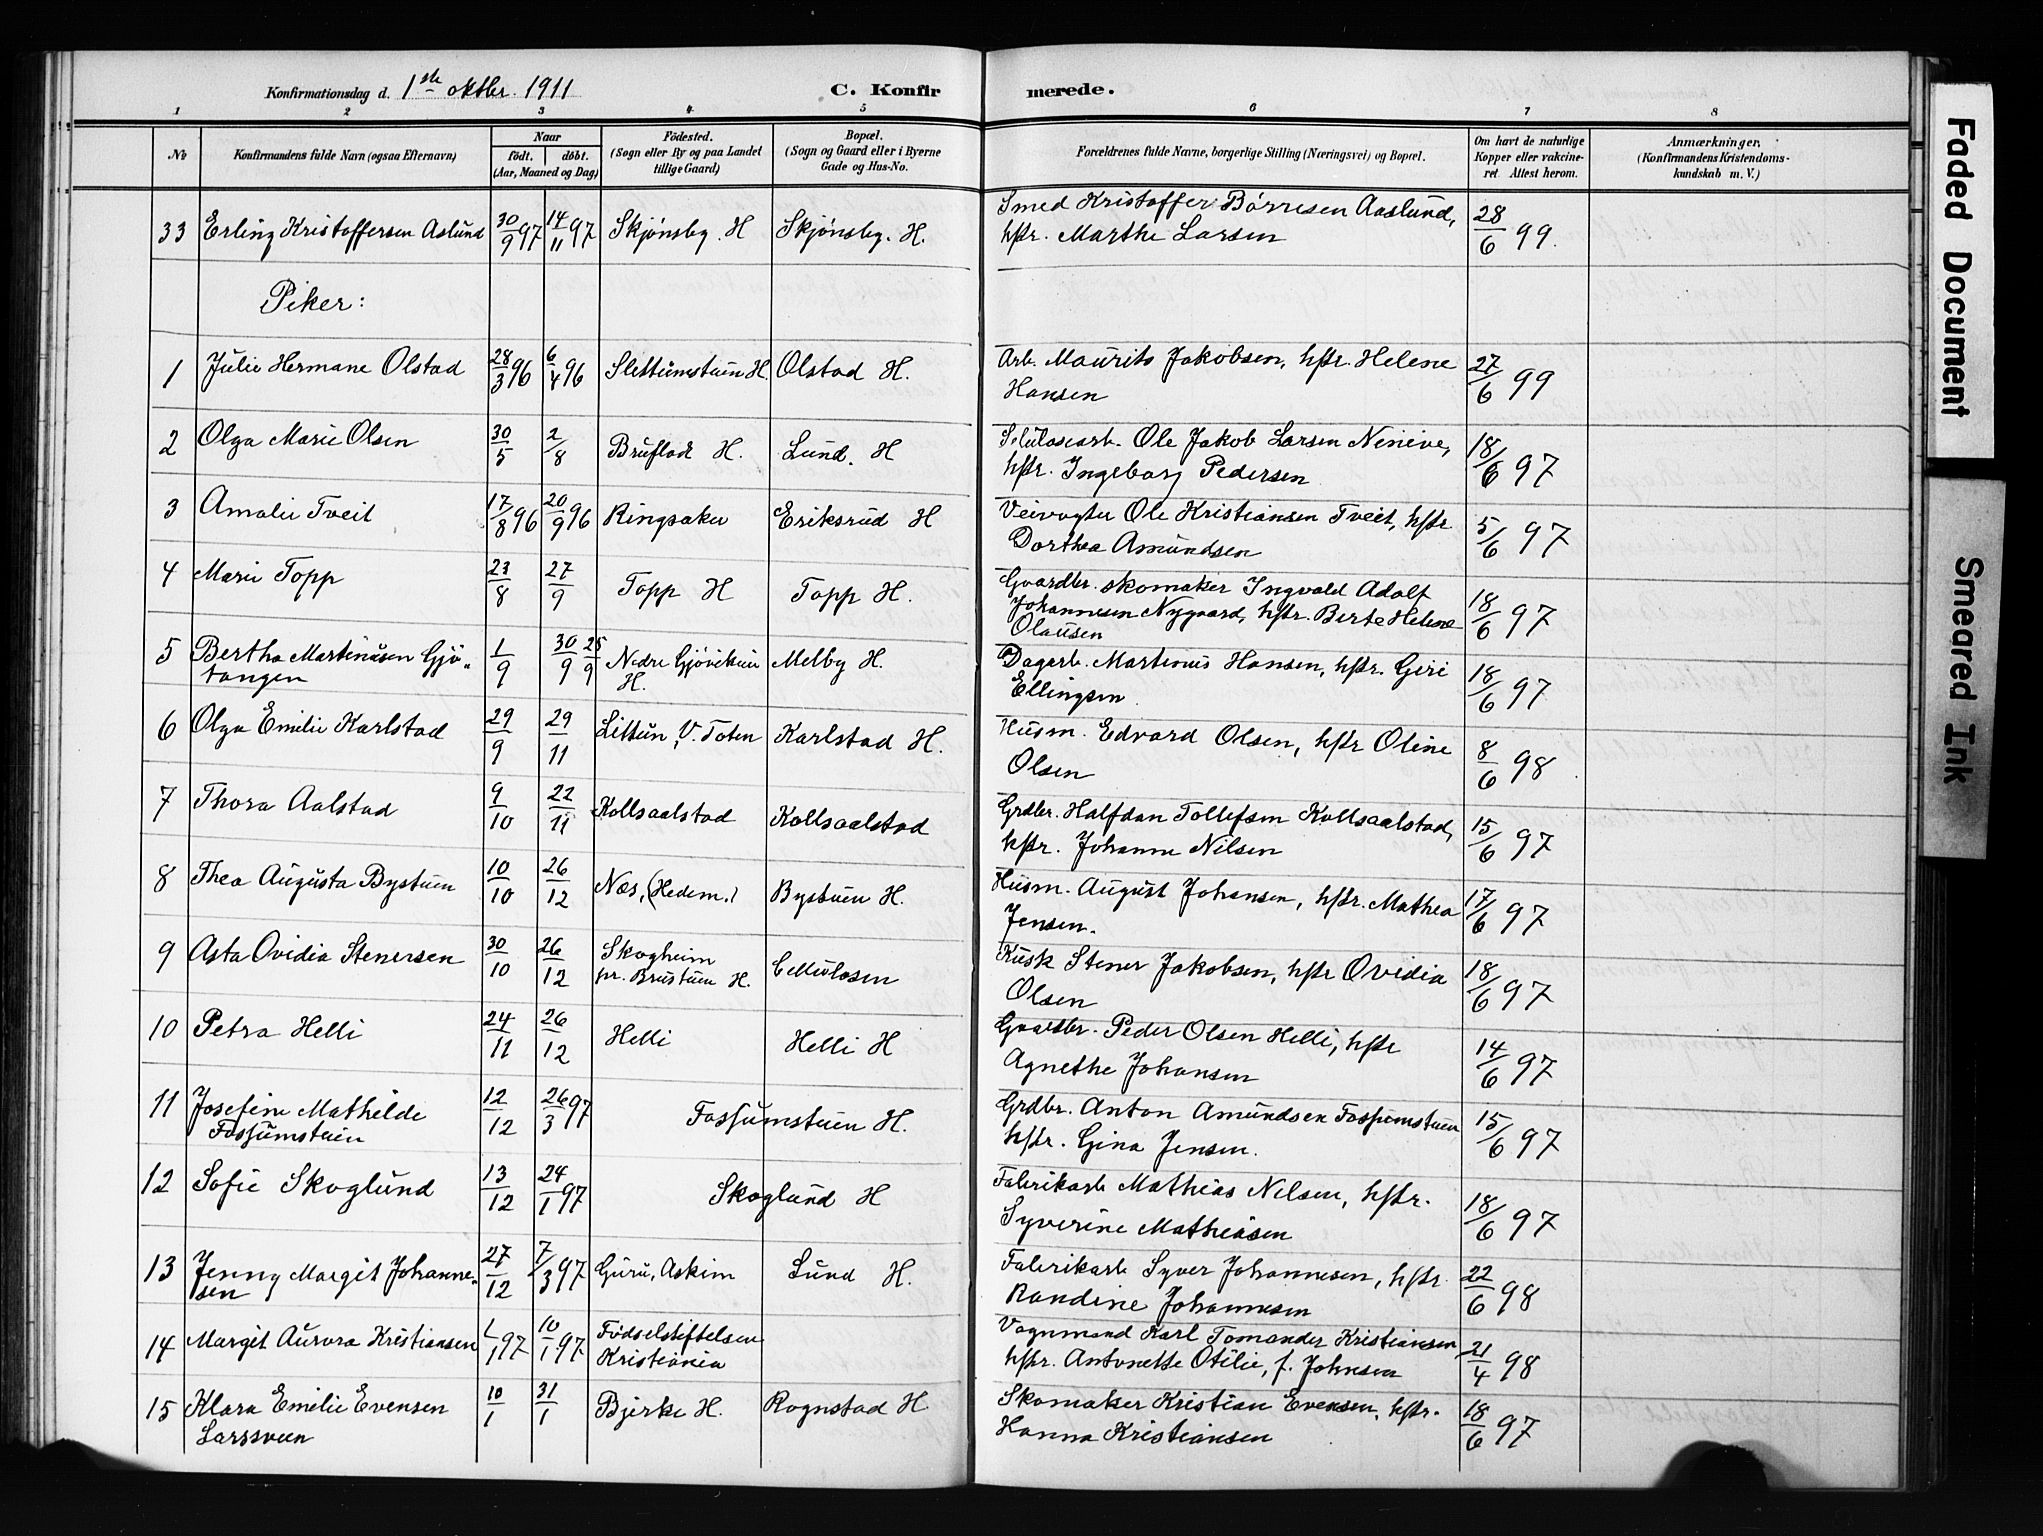 Konfirmationsdag d. 1ste oktbr. 1911
C. Konfir merede.
1 2 3 4 5 6 7 8
No
Konfirmandens fulde Navn (ogsaa Efternavn)
Naar
født. døbt.
(Aar, Maaned og Dag)
Fødested.
(Sogn eller By og paa Landet
tillige Gaard)
Bopæl.
(Sogn og Gaard eller i Byerne
Gade og Hus-No.
Forældrenes fulde Navne, borgerlige Stilling (Næringsvei) og Bopæl.
Om havt de naturlige
Kopper eller vakcine-
ret. Attest herom.
Anmærkninger.
(Konfirmandens Kristendoms-
kundskab m. V.)
33 Erling Kristoffersen Aslund 30/9 97 14/11 97 Skjønsby. H Skjønsby. H. Smed Kristoffer Børresen Aaslund, 28/6 99
hstr. Marthe Larsen
Piker:
1 Julie Hermane Olstad 28/3 96 6/4 96 Slettumstuen H. Olstad H. Arb. Maurits Jakobsen, hstr. Helene 27/6 99
Hansen
2 Olga Marie Olsen 30/5 2/8 Brufladt H. Lund. H Selulosearb. Ole Jakob Larsen Nenive, 18/6 97
hstr. Ingeborg Pedersen
3 Amalie Tveit 17/8 96 20/9 96 Ringsaker Eriksrud H Veivogter Ole Kristiansen Tveit, hstr 5/6 97
Dorthea Amundsen
4 Marie Topp 23/8 27/9 Topp H Topp H. Gaardbr. skomaker Ingvald Adolf 18/6 97
Johannesen Nygaard, hstr. Berte Helene
Olausen
5 Bertha Martinusen Gjø- 1/9 30/9 25/9 Nedre Gjøvikeie Melby H. Dagarb. Martinus Hansen, hstr. Geri 18/6 97
tangen H. Ellingsen
6 Olga Emilie Karlstad 29/9 29/11 Littun, V. Toten Karlstad H. Husm. Edvard Olsen, hstr Oline 8/6 98
Olsen
7 Thora Aalstad 9/10 22/11 Kollsaalstad Kollsaalstad Grdbr. Halfdan Tollefsen Kollsaalstad, 15/6 97
hstr. Johanne Nilsen
8 Thea Augusta Bystuen 10/10 26/12 Næs, (Hedem.) Bystuen H. Husm. August Johansen, hstr. Mathea 17/6 97
Jensen.
9 Asta Ovidia Stenersen 30/10 26/12 Skogheim Cellulosen Kusk Stener Jakobsen, hstr Ovidia 18/6 97
pr. Brustuen H. Olsen
10 Petra Helli 24/11 26/12 Helli Helli H Gaardbr. Peder Olsen Helli, hstr 14/6 97
Agnethe Johansen
11 Josefine Mathilde 12/12 26/3 97 Fossumstuen H. Grdbr. Anton Amundsen Fossumstuen 15/6 97
Fossumstuen hstr. Gina Jensen.
12 Sofie Skoglund 13/12 24/1 97 Skoglund H Fabrikarb Mathias Nilsen, hstr. 18/6 97
Syverine Mathiasen
13 Jenny Margit Johanne- 27/12 7/3 97 Guru, Askim Lund H. Fabrikarb Syver Johannesen, hstr. 22/6 98
sen Randine Johannesen
14 Margit Aurora Kristiansen 1/1 97 10/1 97 Fødselstiftelsen Vognmand Karl Tomander Kristiansen 21/4 98
Kristiania hstr. Antonette Otilie, f. Johnsen
15 Klara Emilie Evensen 10/1 31/1 Bjerke H. Rognstad H Skomaker Kristian Evensen, hstr. 18/6 97
Larssveen Hanna Kristiansen
Faded Document
Smeared Ink